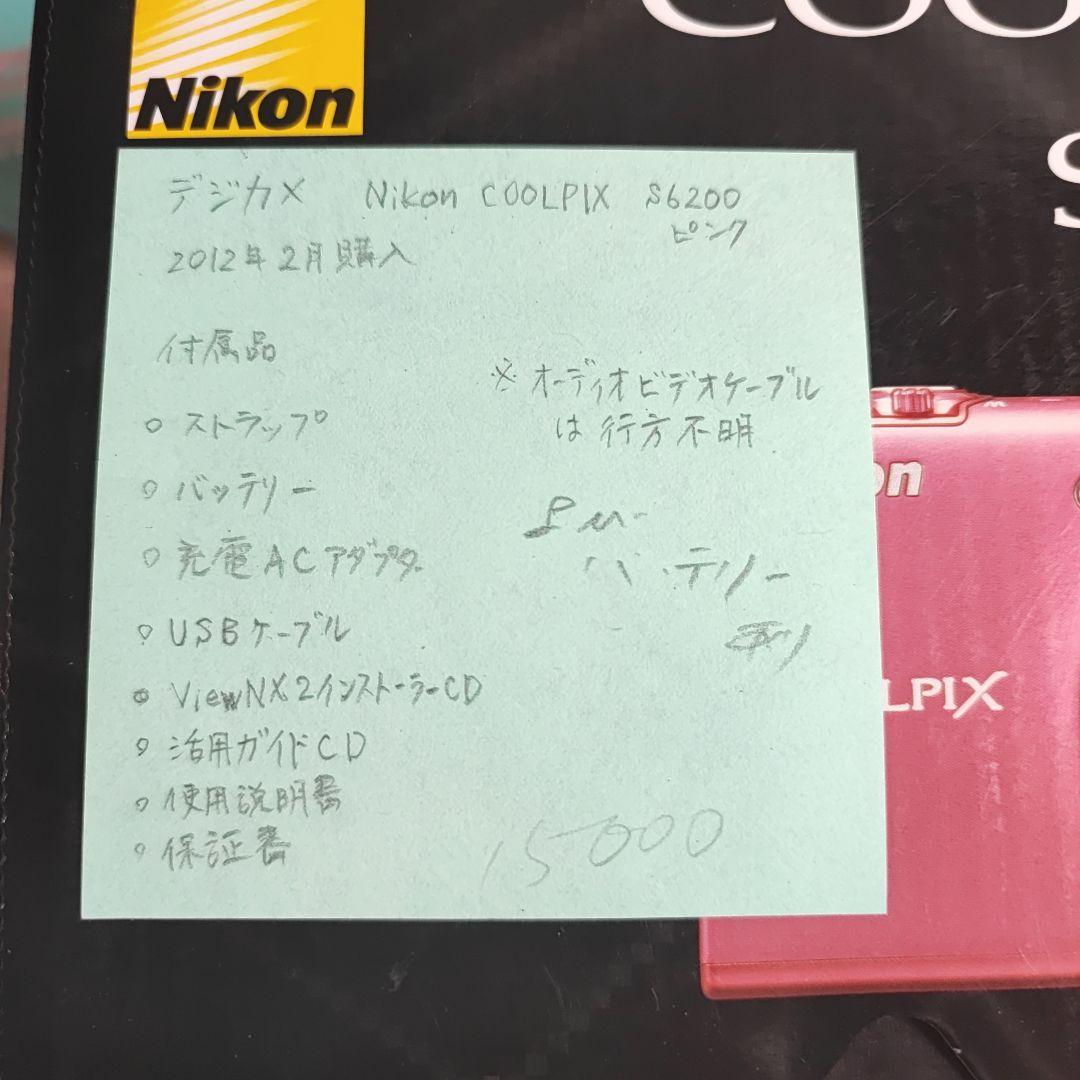 Nikon
COO
S
デジカメ Nikon COOLPIX S6200
ピンク
2012年2月購入
付属品
※オーディオビデオケーブル
は行方不明
○ ストラップ
○ バッテリー
○ 充電ACアダプタ
○ USBケーブル
○ ViewNX2インストーラーCD
○ 活用ガイドCD
○ 使用説明書
○ 保証書
バッテリー
15000
on
LPIX